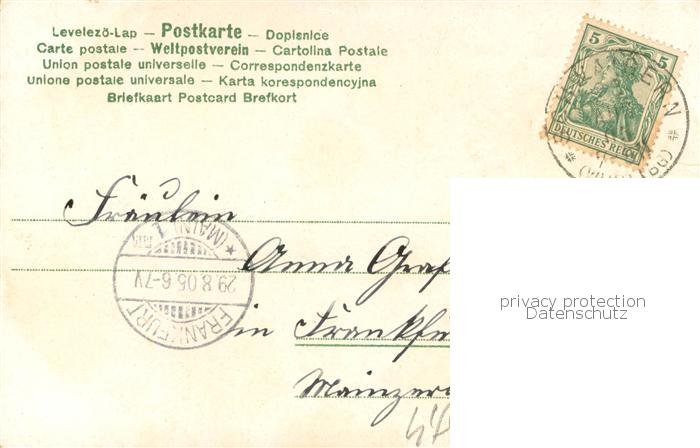 Levelező-Lap — Postkarte — Dopisnice
Carte postale — Weltpostverein — Cartolina Postale
Union postale universelle — Correspondenzkarte
Unione postale universale — Karta korespondencyjna
Briefkaart Postcard Brefkort
5 5
DEUTSCHES REICH
Fräulein
Anna Graf
in Frankfu
Mainzer
FRANKFURT
29.8.05.6-7V
* (MAIN) 1
privacy protection
Datenschutz